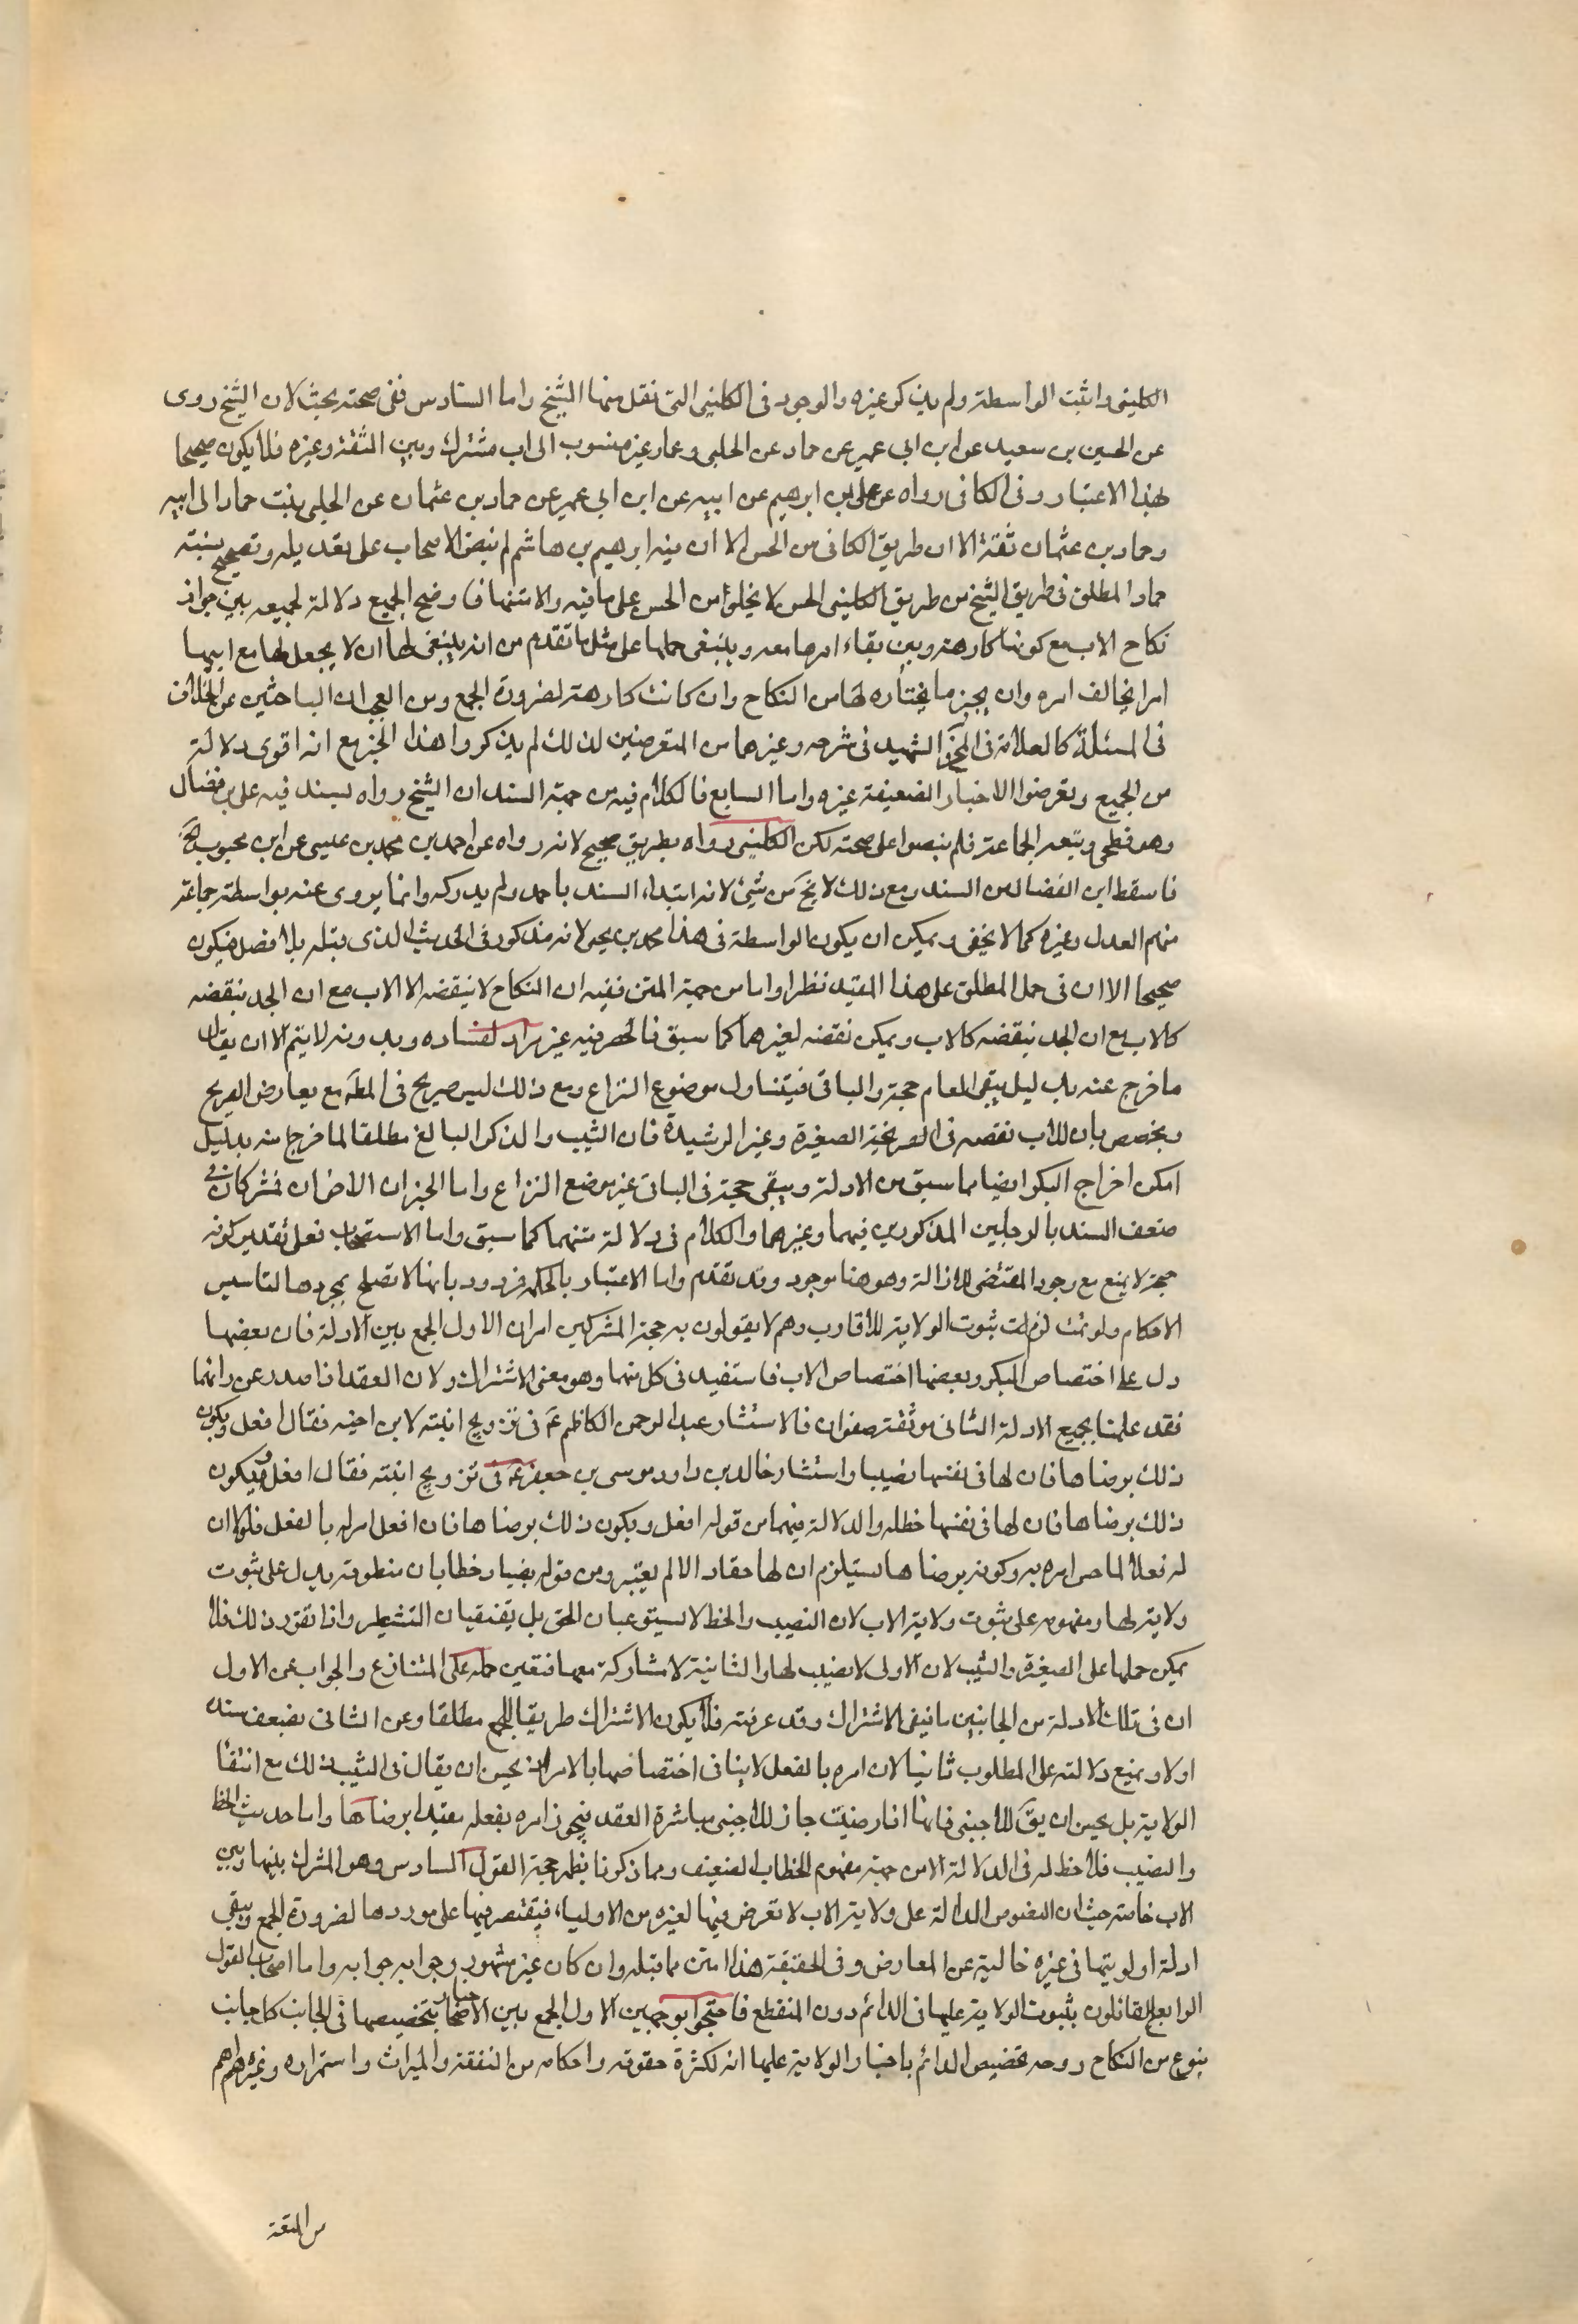 الكلينى واثبت الواسطة ولم يذكر غيره والموجود فى الكلينى التى نقل منها الشيخ واما السادس ففى صحته بحث لان الشيخ روى
عن الحسين بن سعيد عن ابن ابي عمير عن حماد عن الحلبى وحماد غير منسوب الى اب مشترك وبين الثقة وغيره فلا يكون صحيحا
لهذا الاعتبار وفى الكافى رواه عن على بن ابرهيم عن ابيه عن ابن ابي عمير عن حماد بن عثمان عن الحلبى بنسبت حماد الى ابيه
وحماد بن عثمان ثقة الا ان طريق الكافى من الحسن الا ان فيه ابرهيم بن هاشم لم ينص الاصحاب على تعديله وتصحيح بنسبته
حماد المطلق فى طريق الشيخ من طريق الكلينى الحسن لا يخلو من الحسن على ما فيه والاستنهاف اوضح الجميع دلالة لجمعه بين جواز
نكاح الاب مع كونها كارهة وبين بقاء امرها معه وينبغى حملها على مثل ما تقدم من انه ينبغى لها ان لا يجعل لها مع ابيها
امرا يخالف امره وان يجيز ما يختاره لها من النكاح وان كانت كارهة لضرورة الجمع ومن العجب ان الباحثين عن الخلاف
فى المسئلة كالعلامة فى المخ والشهيد فى شرحه وغيرهما من المتعرضين لذلك لم يذكروا هذا الخبر مع انه اقوى دلالة
من الجميع وتعرضوا الاخبار الضعيفة غيره واما السابع فالكلام فيه من جهة السند ان الشيخ رواه بسند فيه على بن فضال
وهو فطحى وتبعه الجماعة فلم ينصوا على صحته لكن الكلينى رواه بطريق صحيح لانه رواه عن احمد بن محمد بن عيسى عن ابن محبوب
فاسقط ابن الفضال من السند ومع ذلك لا يخ من شئ لانه ابتداء السند باحمد ولم يدركه وانما يروى عنه بواسطة جماعة
منهم العدل وغيره كما لا يخفى ويمكن ان يكون الواسطة فى هذا محمد بن يحيى لانه مذكور فى الحديث الذى قبله بلا فصل فيكون
صحيحا الا ان فى حمل المطلق على هذا المقيد نظرا واما من جهة المتن ففيه ان النكاح لا ينقضه الا الاب مع ان الجد ينقضه
كالاب مع ان الجد ينقضه كالاب ويمكن نقضه لغيرهما كما سبق فالحصر فيه غير مراد لفساده وبدونه لا يتم الا ان يقال
ما خرج عنه بدليل يبقى العام حجة والباقى فيتناول موضوع النزاع ومع ذلك ليس صريح فى المط مع يعارض الصريح
ويخصص بان للاب نقضه فى الصغيرة وغير الرشيدة فان الثيب والذكر البالغ مطلقا لما خرجا منه بدليل
امكن اخراج البكر ايضا بما سبق من الادلة ويبقى حجة فى الباقى غير موضع النزاع واما الخبران الاخران فمشتركان فى
ضعف السند بالرجلين المذكورين فيهما وغيرهما والكلام فى دلالة متنهما كما سبق واما الاستصحاب فعلى تقدير كونه
حجة لا يمنع مع وجود المقتضى للازالة وهو هنا موجود وقد تقدم واما الاعتبار بالحكمة فمردود بانها لا تصلح بمجردها لتاسيس
الاحكام ولو تمت لزمت ثبوت الولاية للاقارب وهم لا يقولون به حجة المشركين امران الاول الجمع بين الادلة فان بعضها
دل على اختصاص البكر وبعضها اختصاص الاب فاستفيد فى كل منهما وهو معنى الاشتراك ولان العقد اذا صدر عن رايهما
فقد علمنا بجميع الادلة الثانى موثقة صفوان فالاستشار عبد الرحمن الكاظم ع فى تزويج ابنته لابن اخيه فقال افعل ويكون
ذلك برضاها فان لها فى نفسها نصيبا واستشار خالد بن داود موسى بن جعفر ع فى تزويج ابنته فقال افعل ويكون
ذلك برضاها فان لها فى نفسها حظله والدلالة فيهما من قوله افعل ويكون ذلك برضاها فان افعل امر له بالفعل فلولا ان
له فعلا لما صح امره به وكونه برضاها يستلزم ان لها حقا والا لم يعتبر ومن قوله نصيبا وحظا بان منطوقه يدل على ثبوت
ولاية لها ومفهومه على ثبوت ولاية الاب لان النصيب والحظ لا يستوعبان الحق بل يقتضيان التشطير واذا تقرر ذلك فلا
يمكن حملها على الصغيرة والثيب لان الاولى لا نصيب لها والثانية لا مشاركة معها فتعين حمله على المتنازع والجواب عن الاول
ان فى تلك الادلة من الجانبين ما ينفى الاشتراك وقد عرفته فلا يكون الاشتراك طريقا للجمع مطلقا وعن الثانى بضعف سنده
اولا ويمنع دلالته على المطلوب ثانيا لان امره بالفعل لا ينافى اختصاصها بالامر اذ يحسن ان يقال فى الثيب ذلك مع انتفاء
الولاية بل يحسن ان يق للاجنبى فانها اذا رضيت جاز للاجنبى مباشرة العقد فيجوز امره بفعله مقيدا برضاها واما حديث الحظ
والنصيب فلا حظ له فى الدلالة الا من جهة مفهوم الخطاب الضعيف ومما ذكرنا يظهر حجة القول السادس وهو المشترك بينها وبين
الاب خاصة حيث ان النصوص الدالة على ولاية الاب لا تعرض فيها لغيره من الاولياء فيقتصر فيها على موردها لضرورة الجمع ويبقى
ادلة اولويتها فى غيره خالية عن المعارض وفى الحقيقة هذا امتن مما قبله وان كان غير مشهور وجوابه جوابه واما اصحاب القول
الرابع القائلون بثبوت الولاية عليها فى الدائم دون المنقطع فاحتجوا بوجهين الاول الجمع بين الاخبار بتخصيصها فى الجانب كل جانب
بنوع من النكاح ووجه تخصيص الدائم باخبار الولاية عليها انه لكثرة حقوقه واحكامه من النفقة والميراث واستمراره وغيره اهم
من المتعة